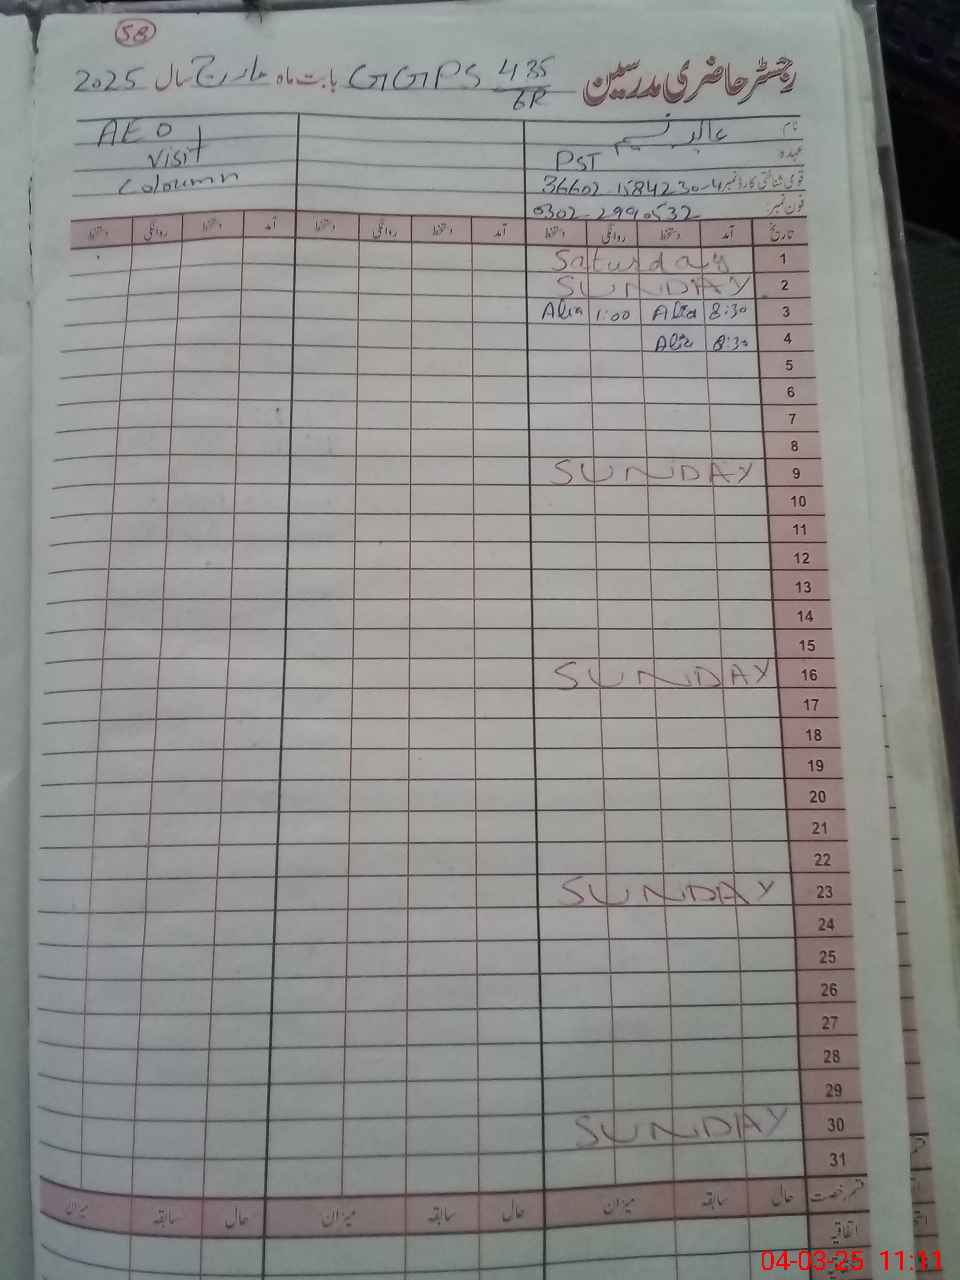 58
رجسٹر حاضری مدرسین GGPS 435/6R بابت ماہ مارچ سال 2025
نام عالیہ نسیم
عہدہ PST
قومی شناختی کارڈ نمبر 36602-1584230-4
فون نمبر: 0302-2990532
AEO
visit
Coloumn
تاریخ آمد دستخط روانگی دستخط آمد دستخط روانگی دستخط آمد دستخط روانگی دستخط
1 Saturday
2 SUNDAY
3 8:30 Alia 1:00 Alia
4 8:30 Alia
5
6
7
8
9 SUNDAY
10
11
12
13
14
15
16 SUNDAY
17
18
19
20
21
22
23 SUNDAY
24
25
26
27
28
29
30 SUNDAY
31
قسم رخصت حال سابقہ میزان حال سابقہ میزان حال سابقہ میزان
اتفاقیہ
04-03-25 11:11